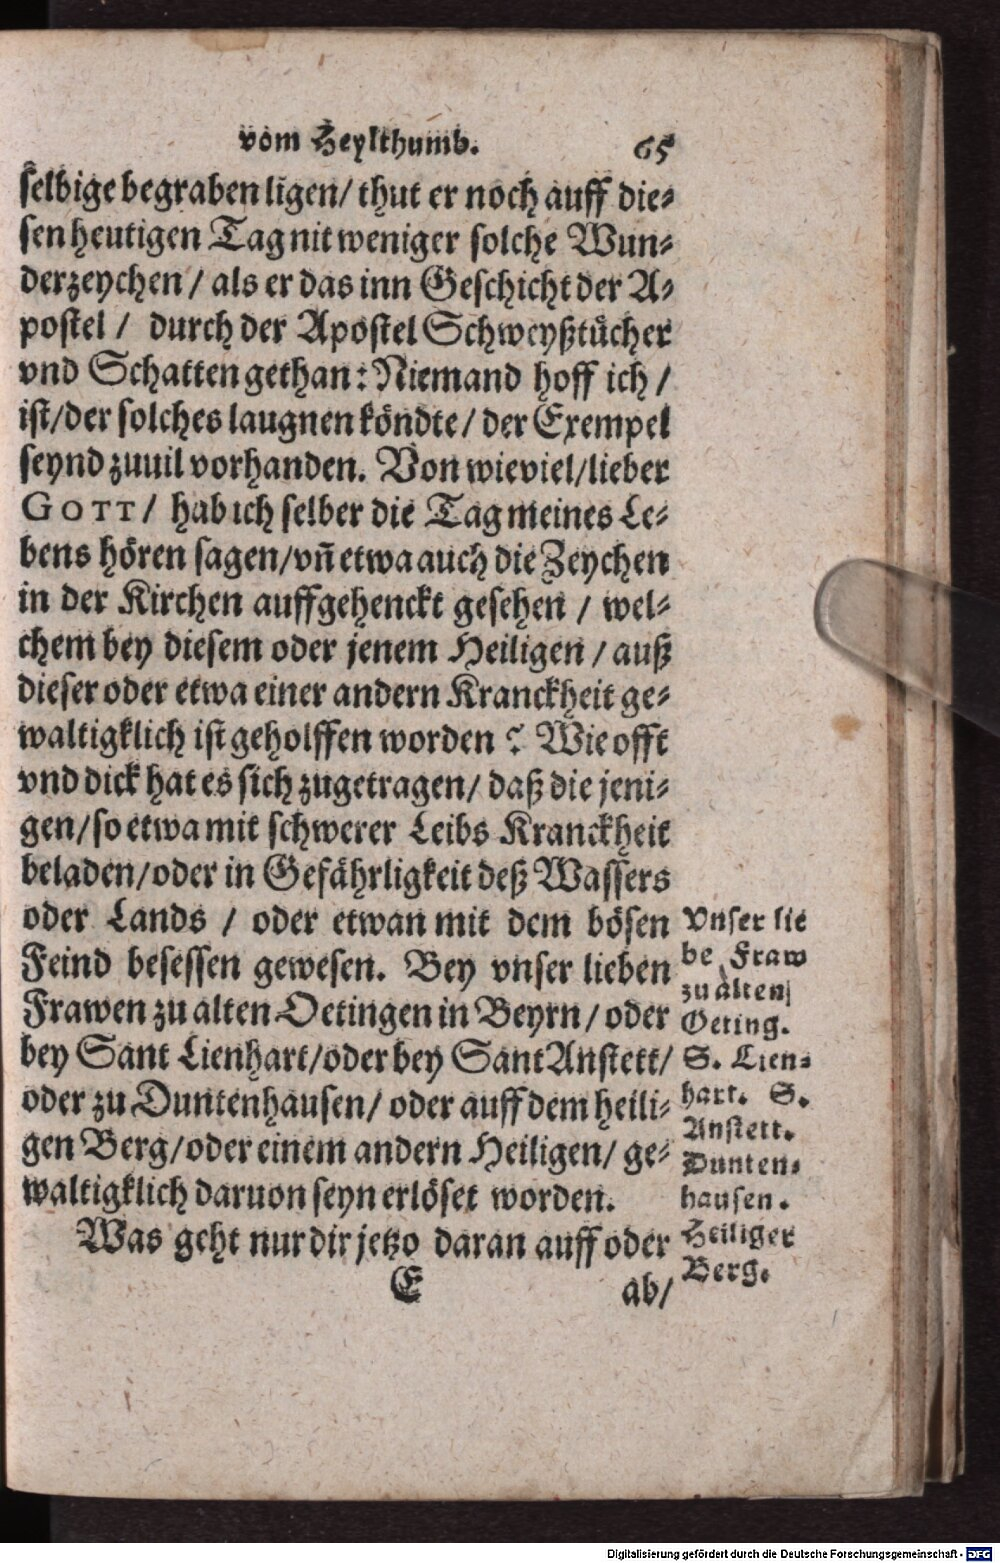 vom Heylthumb. 65
selbige begraben ligen/ thut er noch auff die⸗
sen heutigen Tag nit weniger solche Wun⸗
derzeychen / als er das inn Geschicht der A⸗
postel / durch der Apostel Schweyßtücher
vnd Schatten gethan: Niemand hoff ich /
ist/der solches laugnen köndte/ der Exempel
seynd zuuil vorhanden. Von wieviel/lieber
GOTT/ hab ich selber die Tag meines Le⸗
bens hören sagen/vñ etwa auch die Zeychen
in der Kirchen auffgehenckt gesehen / wel⸗
chem bey diesem oder jenem Heiligen / auß
dieser oder etwa einer andern Kranckheit ge⸗
waltigklich ist geholffen worden ? Wie offt
vnd dick hat es sich zugetragen/ daß die jeni⸗
gen/so etwa mit schwerer Leibs Kranckheit
beladen/oder in Gefährligkeit deß Wassers
oder Lands / oder etwan mit dem bösen
Feind besessen gewesen. Bey vnser lieben
Frawen zu alten Oetingen in Beyrn/ oder
bey Sant Lienhart/oder bey Sant Anstett/
oder zu Duntenhausen/ oder auff dem heili⸗
gen Berg/oder einem andern Heiligen/ ge⸗
waltigklich daruon seyn erlöset worden.
Was geht nur dir jetzo daran auff oder
E ab/
Vnser lie
be Fraw
zu alten
Oeting.
S. Lien⸗
hart. S.
Anstett.
Dunten⸗
hausen.
Heiliger
Berg.
Digitalisierung gefördert durch die Deutsche Forschungsgemeinschaft - DFG